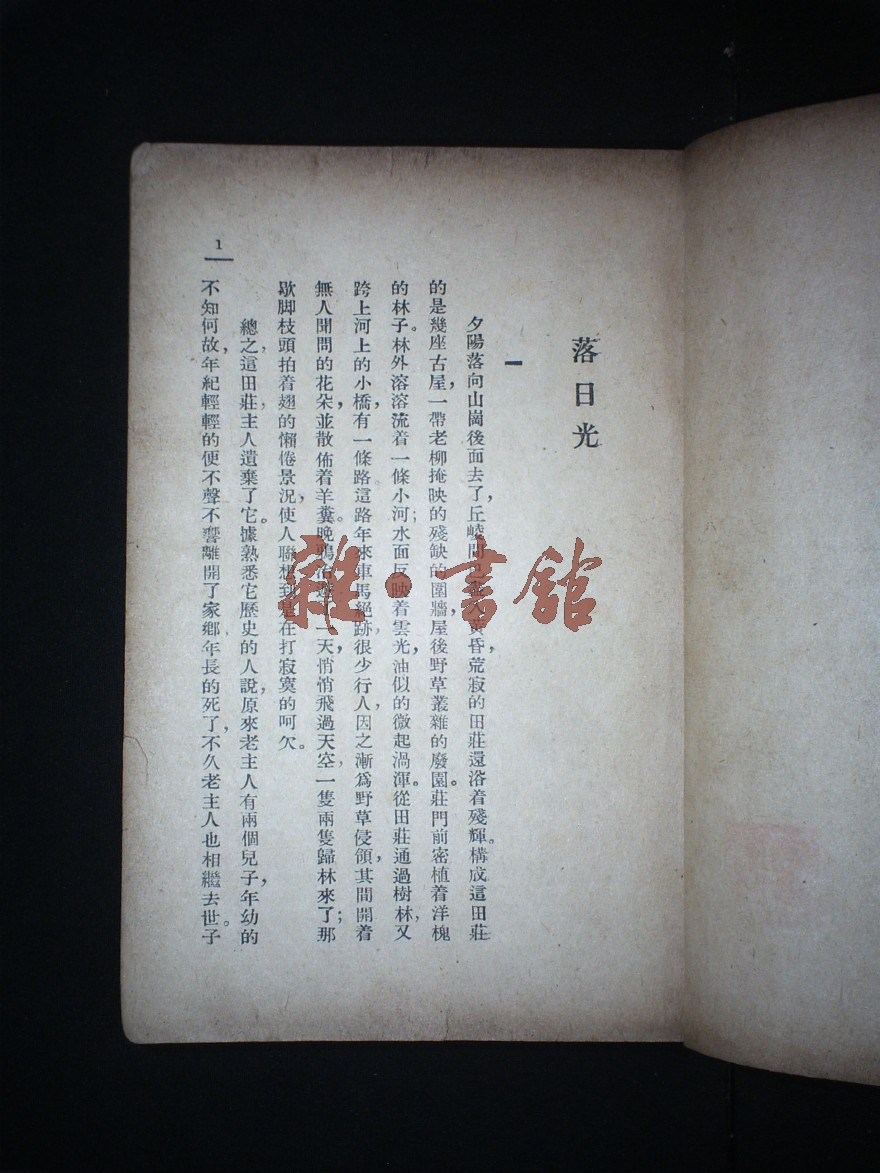 落日光
一
夕陽落向山崗後面去了，丘崚間已黃昏，荒寂的田莊還浴着殘輝。構成這田莊
的是幾座古屋，一帶老柳掩映的殘缺的圍牆，屋後野草叢雜的廢園。莊門前密植着洋槐
的林子。林外溶溶流着一條小河；水面反映着雲光，油似的微起渦渾。從田莊通過樹林，又
跨上河上的小橋，有一條路。這路年來車馬絕跡，很少行人，因之漸爲野草侵領，其間開着
無人聞問的花朵，並散佈着羊糞。晚鴉冶遊了一天，悄悄飛過天空，一隻兩隻歸林來了；那
歇脚枝頭拍着翅的懶倦景況，使人聯想到是在打寂寞的呵欠。
總之，這田莊，主人遺棄了它。據熟悉它歷史的人說，原來老主人有兩個兒子，年幼的
不知何故，年紀輕輕的便不聲不響離開了家鄉，年長的死了，不久老主人也相繼去世。子
1
雜·書舘